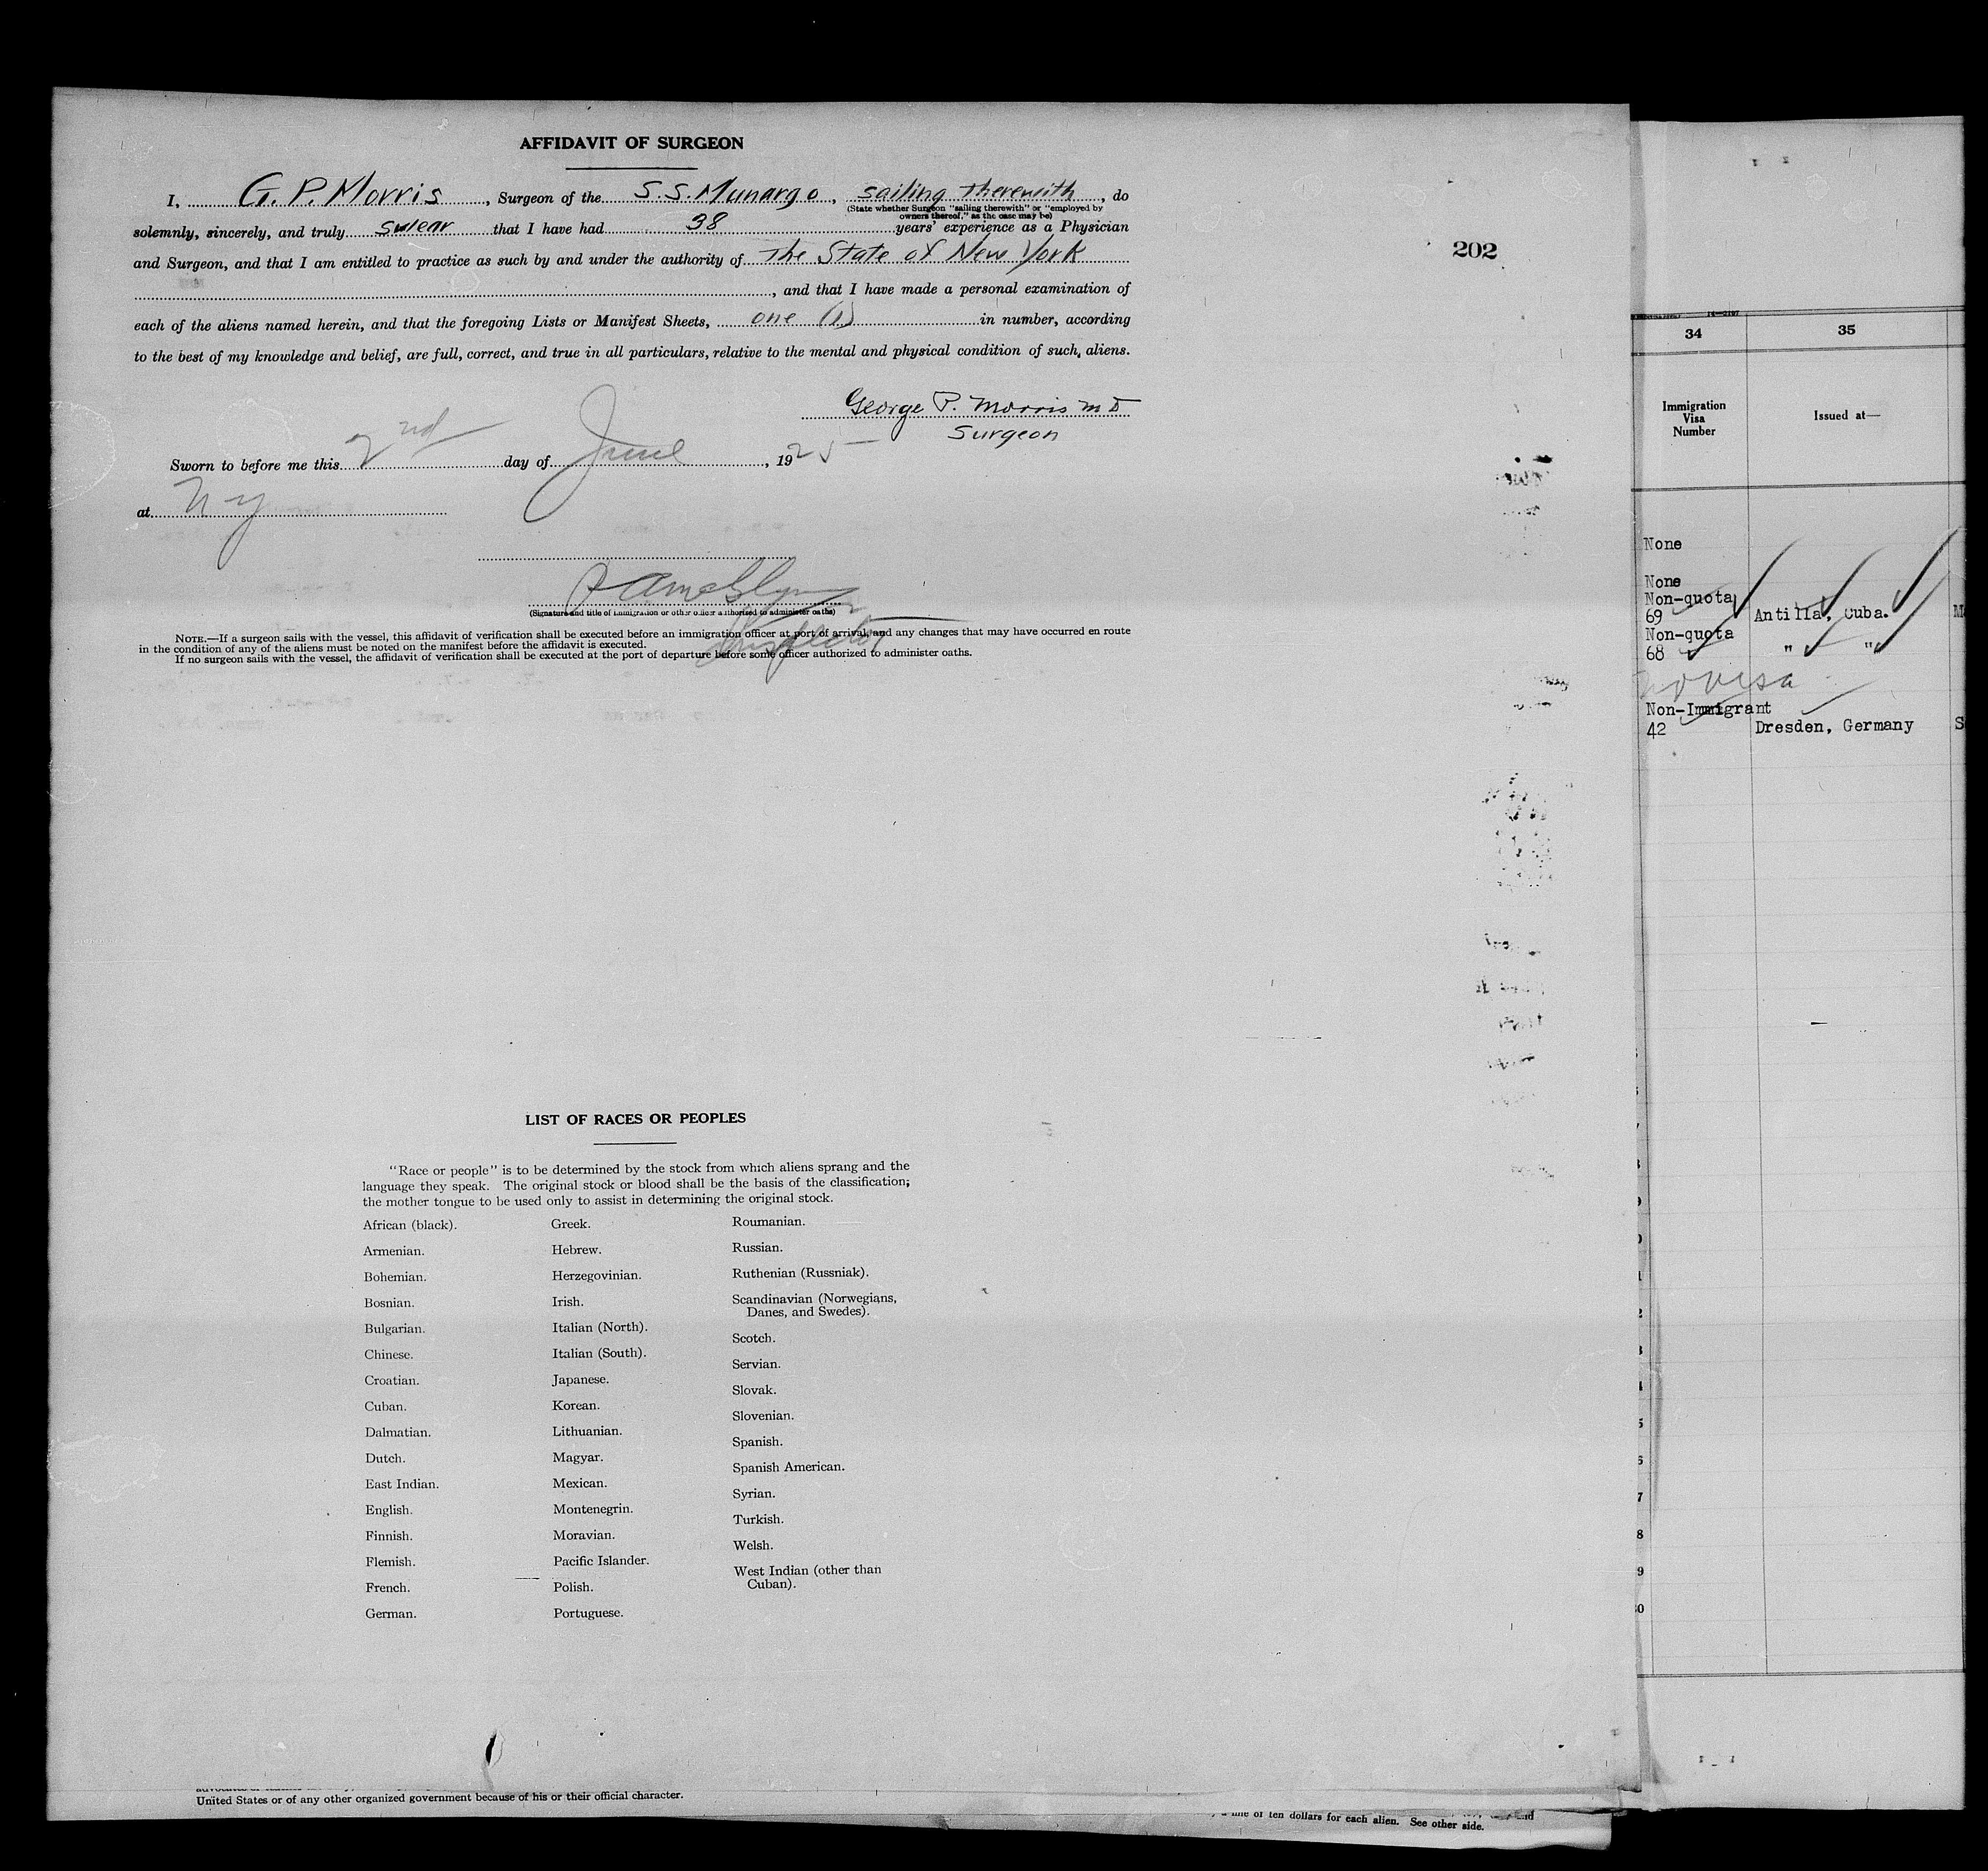 AFFIDAVIT OF SURGEON
I, G. P. Morris, Surgeon of the S.S. Munargo, sailing therewith, do
(State whether Surgeon "sailing therewith" or "employed by
owners thereof," as the case may be)
solemnly, sincerely, and truly swear that I have had 38 years' experience as a Physician
and Surgeon, and that I am entitled to practice as such by and under the authority of The State of New York
, and that I have made a personal examination of
each of the aliens named herein, and that the foregoing Lists or Manifest Sheets, one (1) in number, according
to the best of my knowledge and belief, are full, correct, and true in all particulars, relative to the mental and physical condition of such aliens.
George P. Morris M D
Surgeon
Sworn to before me this 2nd day of June, 1925
at N Y
(Signature and title of immigration or other officer authorized to administer oaths)
Inspector
NOTE.—If a surgeon sails with the vessel, this affidavit of verification shall be executed before an immigration officer at port of arrival, and any changes that may have occurred en route
in the condition of any of the aliens must be noted on the manifest before the affidavit is executed.
If no surgeon sails with the vessel, the affidavit of verification shall be executed at the port of departure before some officer authorized to administer oaths.
202
LIST OF RACES OR PEOPLES
"Race or people" is to be determined by the stock from which aliens sprang and the
language they speak. The original stock or blood shall be the basis of the classification;
the mother tongue to be used only to assist in determining the original stock.
African (black).
Armenian.
Bohemian.
Bosnian.
Bulgarian.
Chinese.
Croatian.
Cuban.
Dalmatian.
Dutch.
East Indian.
English.
Finnish.
Flemish.
French.
German.
Greek.
Hebrew.
Herzegovinian.
Irish.
Italian (North).
Italian (South).
Japanese.
Korean.
Lithuanian.
Magyar.
Mexican.
Montenegrin.
Moravian.
Pacific Islander.
Polish.
Portuguese.
Roumanian.
Russian.
Ruthenian (Russniak).
Scandinavian (Norwegians,
Danes, and Swedes).
Scotch.
Servian.
Slovak.
Slovenian.
Spanish.
Spanish American.
Syrian.
Turkish.
Welsh.
West Indian (other than
Cuban).
United States or of any other organized government because of his or their official character.
fine of ten dollars for each alien. See other side.
34 35
Immigration
Visa
Number
Issued at—
None
None
Non-quota
69 Antilla, Cuba.
Non-quota
68 " "
no visa
Non-Immigrant
42 Dresden, Germany